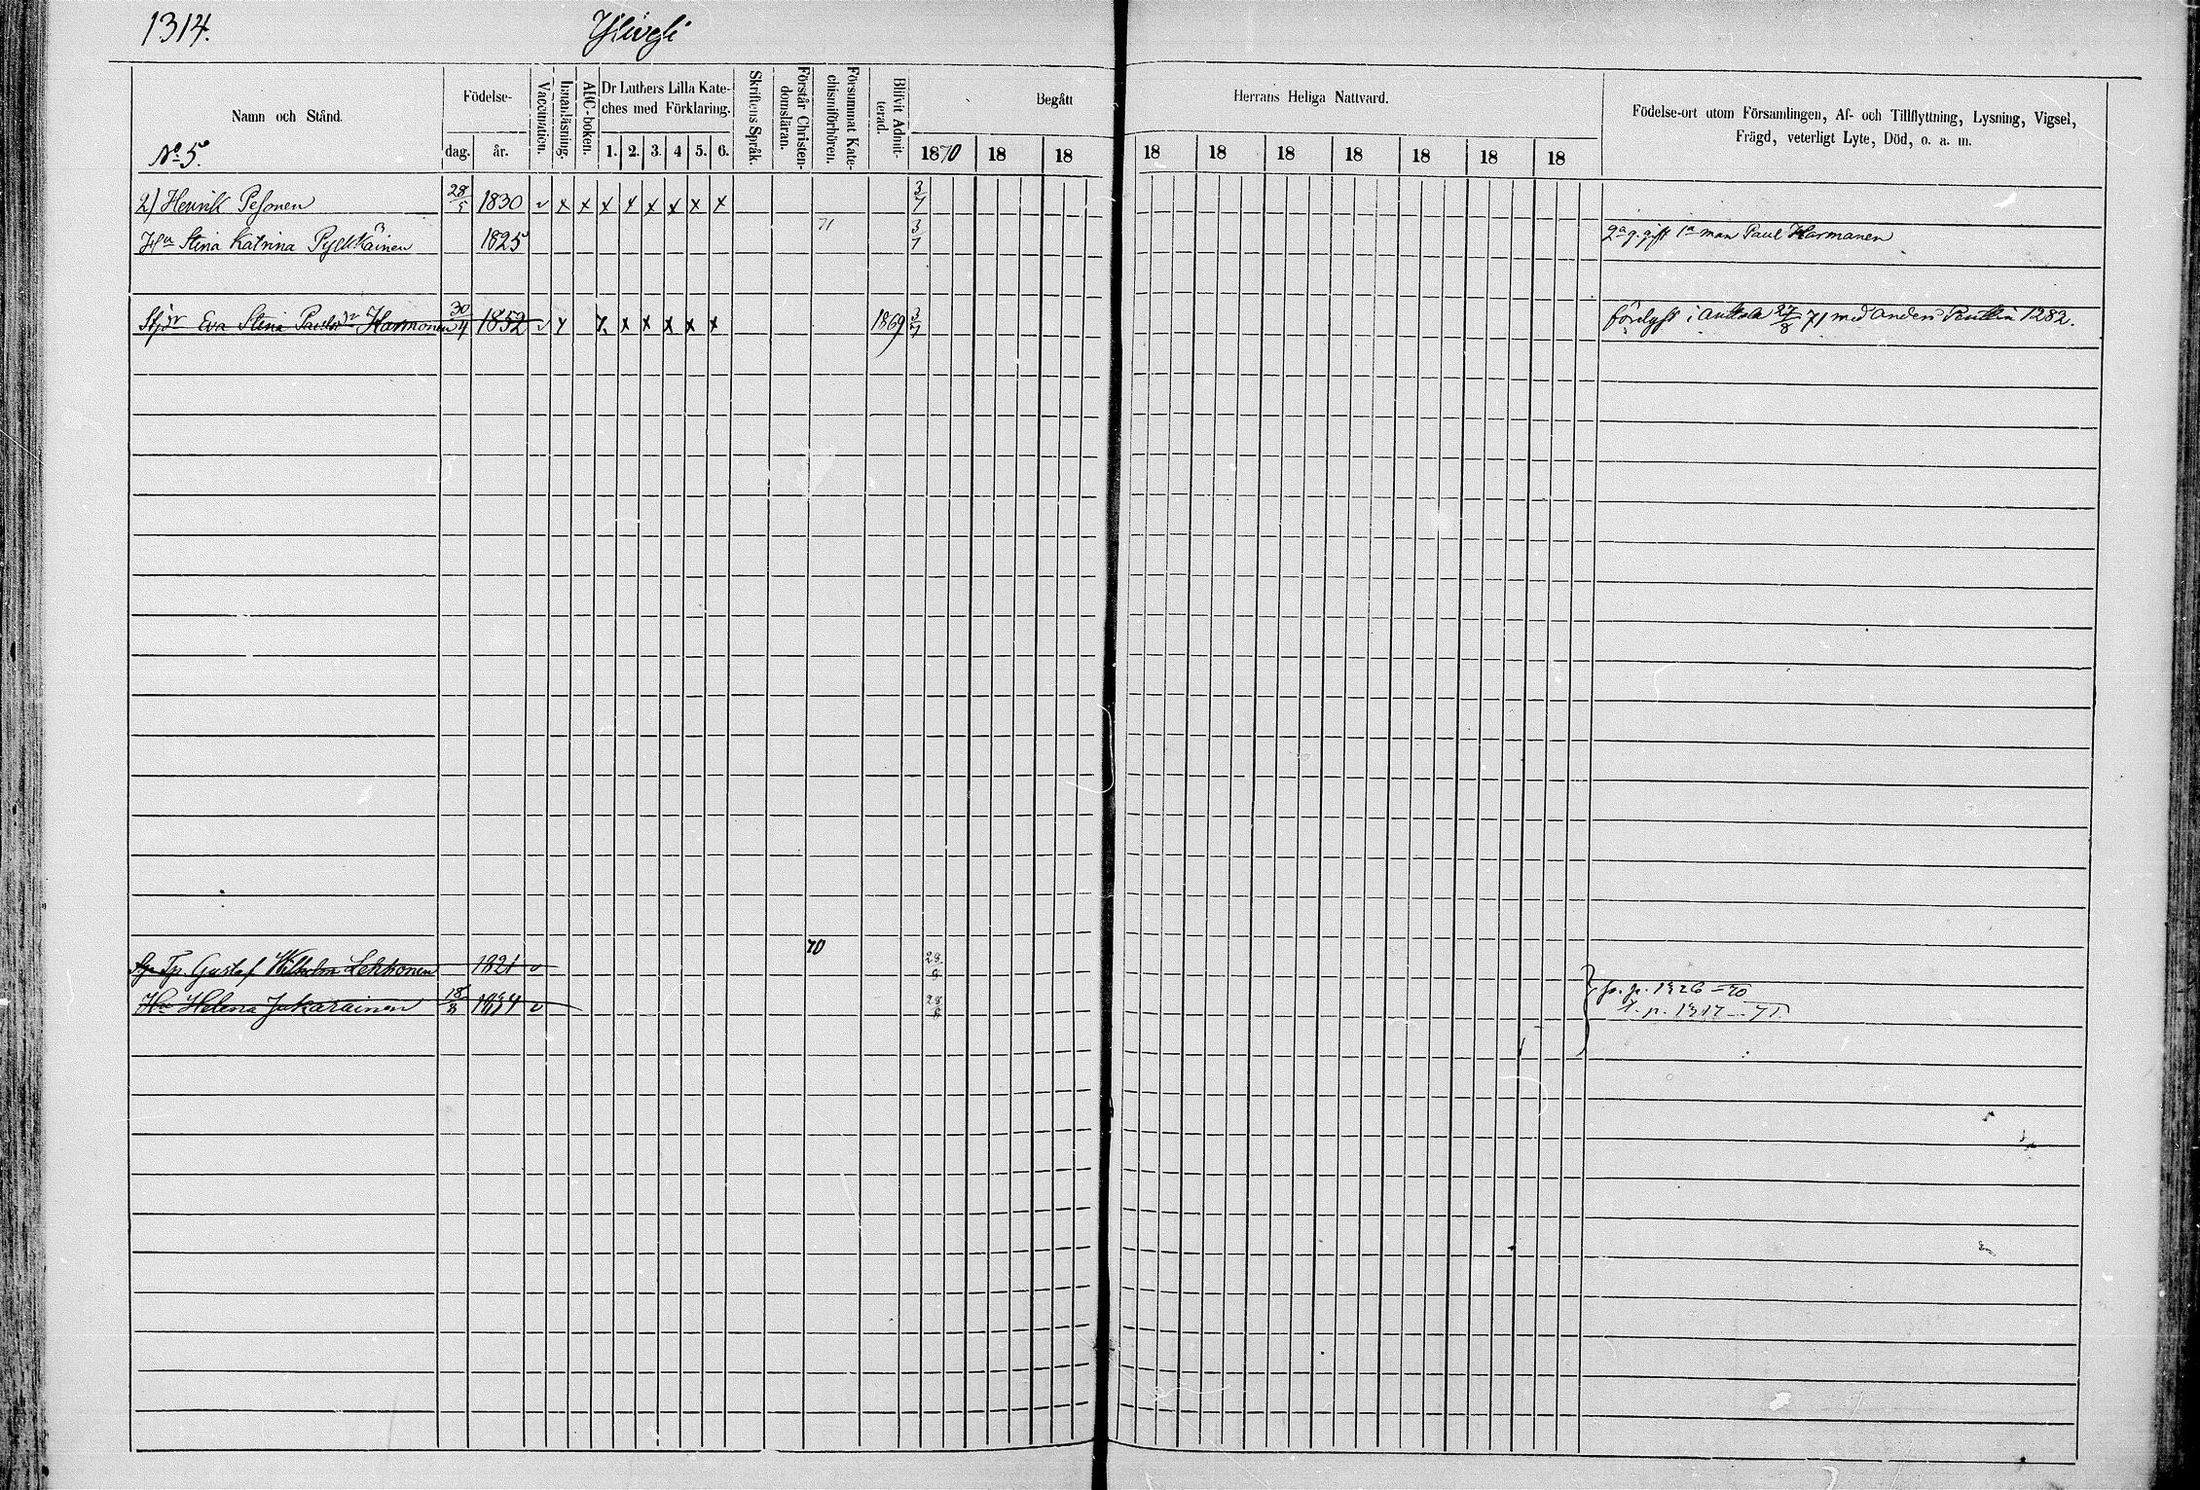 1314.
Namn och Stånd.
No 5.
Födelse-
dag.
år.
Vaccination.
Innanläsning.
ABC-boken.
Dr Luthers Lilla Kate-
ches med Förklaring.
1. 2. 3. 4 5. 6.
Skriftens Språk.
Förstår Christen-
domsläran.
Försummat Kate-
chismiförhören.
Blifvit Admit-
terad.
Begått
Herrans Heliga Nattvard.
1870 18 18 18 18 18 18 18 18 18
Födelse-ort utom Församlingen, Af- och Tillflyttning, Lysning, Vigsel,
Frägd, veterligt Lyte, Död, o. a. m.
2) Henrik Pesonen 28/5 1830 v x x x x x x x x 3/7
Hu Stina Katrina Pylkkäinen 1825 71 3/7 2a g. gift 1a man Paul Harmanen
Stjdr Eva Stina Paulsdr Harmonen 30/4 1852 v x x x x x x x 1869 3/7 förlyst i 27/8 71 med Anders 1282.
Gustaf Wilhelm Lehkonen 1821 v 70 28/8
Hu Helena Jukarainen 18/8 1834 v 28/8 fr. p. 1326 - 70
t. p. 1317 - 71.